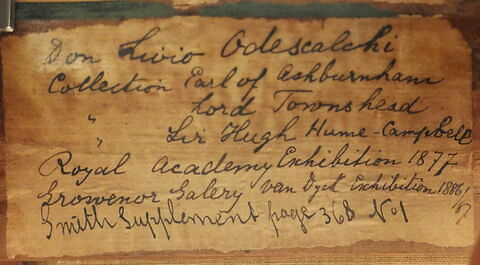 Don Livio Odescalchi
Collection Earl of Ashburnham
" Lord Townshead
" Sir Hugh Hume-Campbell
Royal Academy Exhibition 1877
Grosvenor Galery Van Dyck Exhibition 1886/7
Smith Supplement page 368 No1